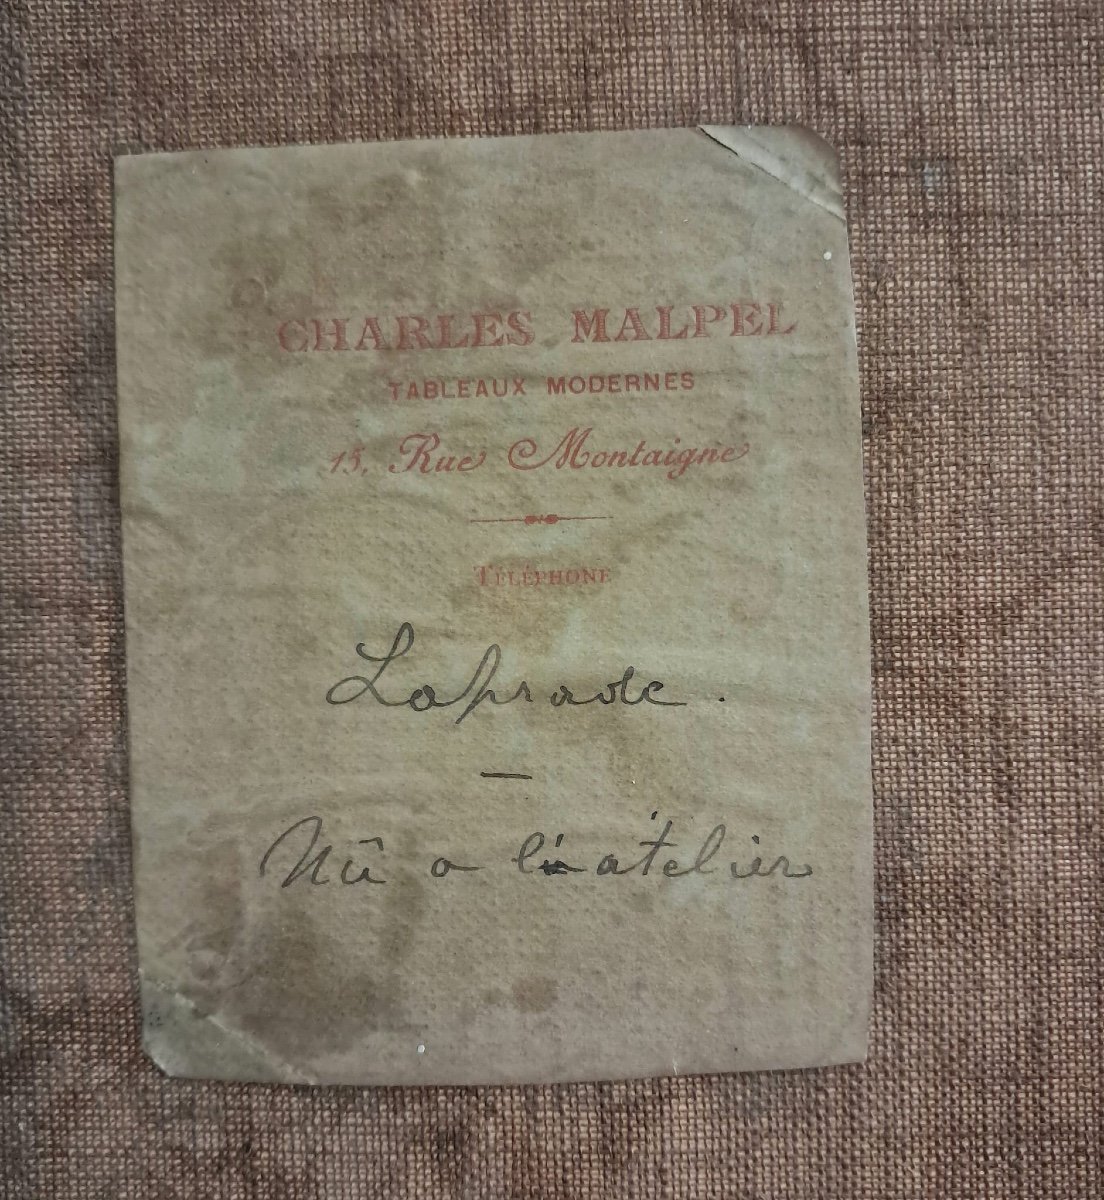 CHARLES MALPEL
TABLEAUX MODERNES
15, Rue Montaigne
TÉLÉPHONE
Laprade.
—
Nû a l'atelier